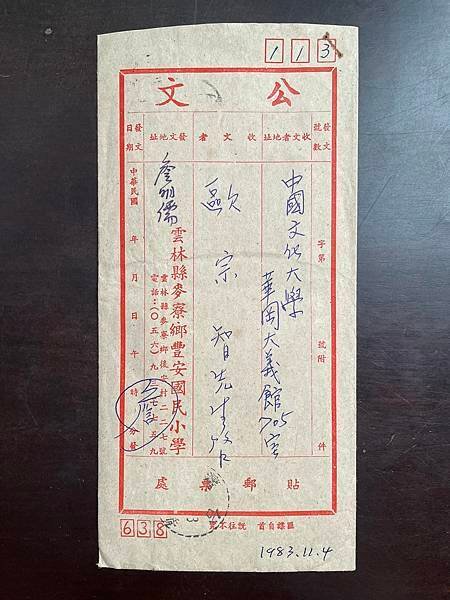 113
公文
發文號數
字第 號附 件
收文者地址
中國文化大學
華岡大義館705室
收文者
歐宗智先生啓
發文地址
詹明儒
雲林縣麥寮鄉豐安國民小學
雲林縣麥寮鄉後安村二二七號
發文日期
中華民國 年 月 日 午 時 分發
貼郵票處
638
1983.11.4